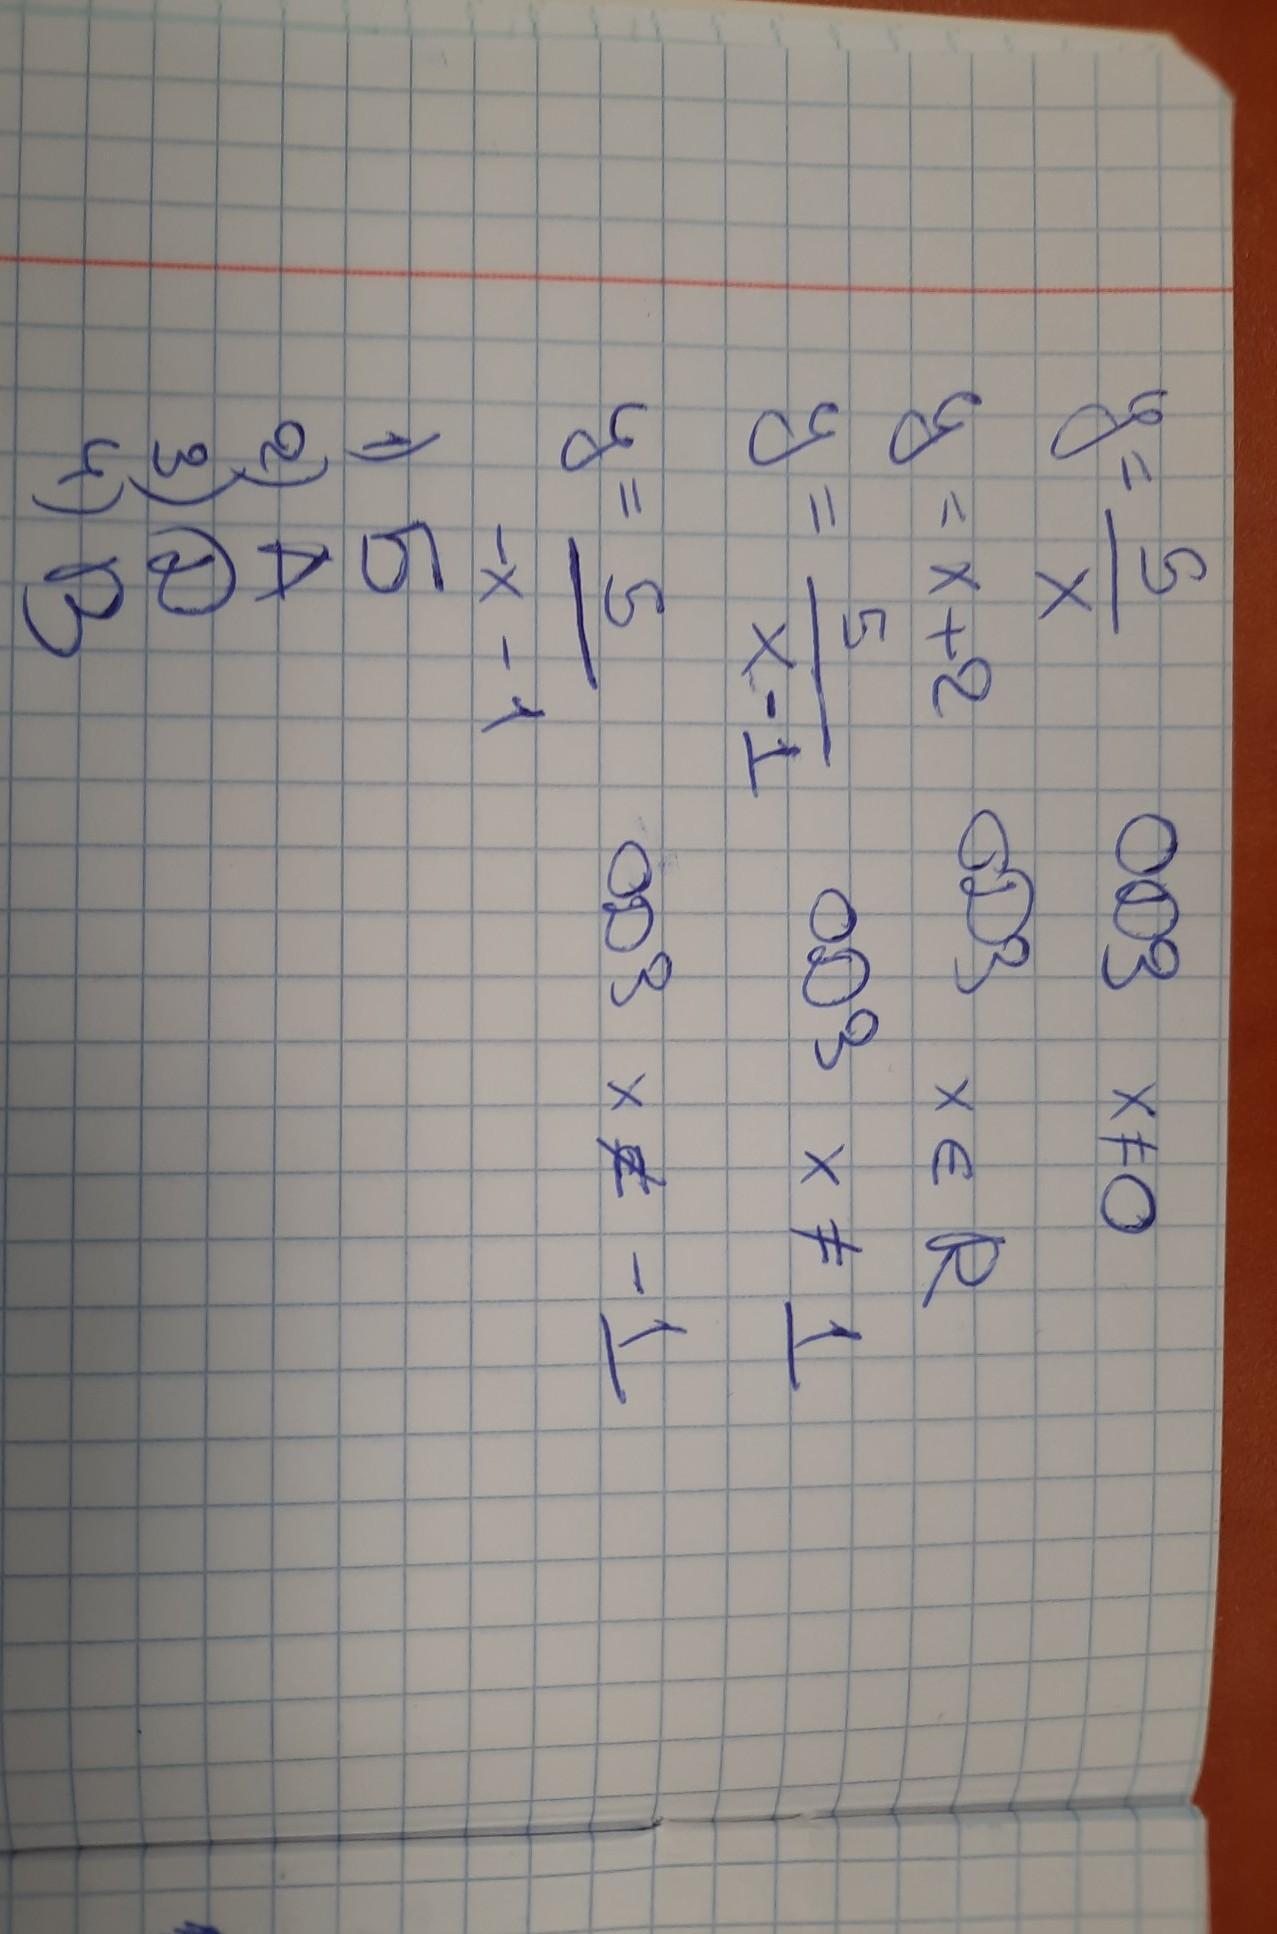 y = 5/x ОДЗ x ≠ 0
y = x + 2 ОДЗ x ∈ R
y = 5/(x - 1) ОДЗ x ≠ 1
y = 5/(-x - 1) ОДЗ x ≠ -1
1) Б
2) А
3) Д
4) В